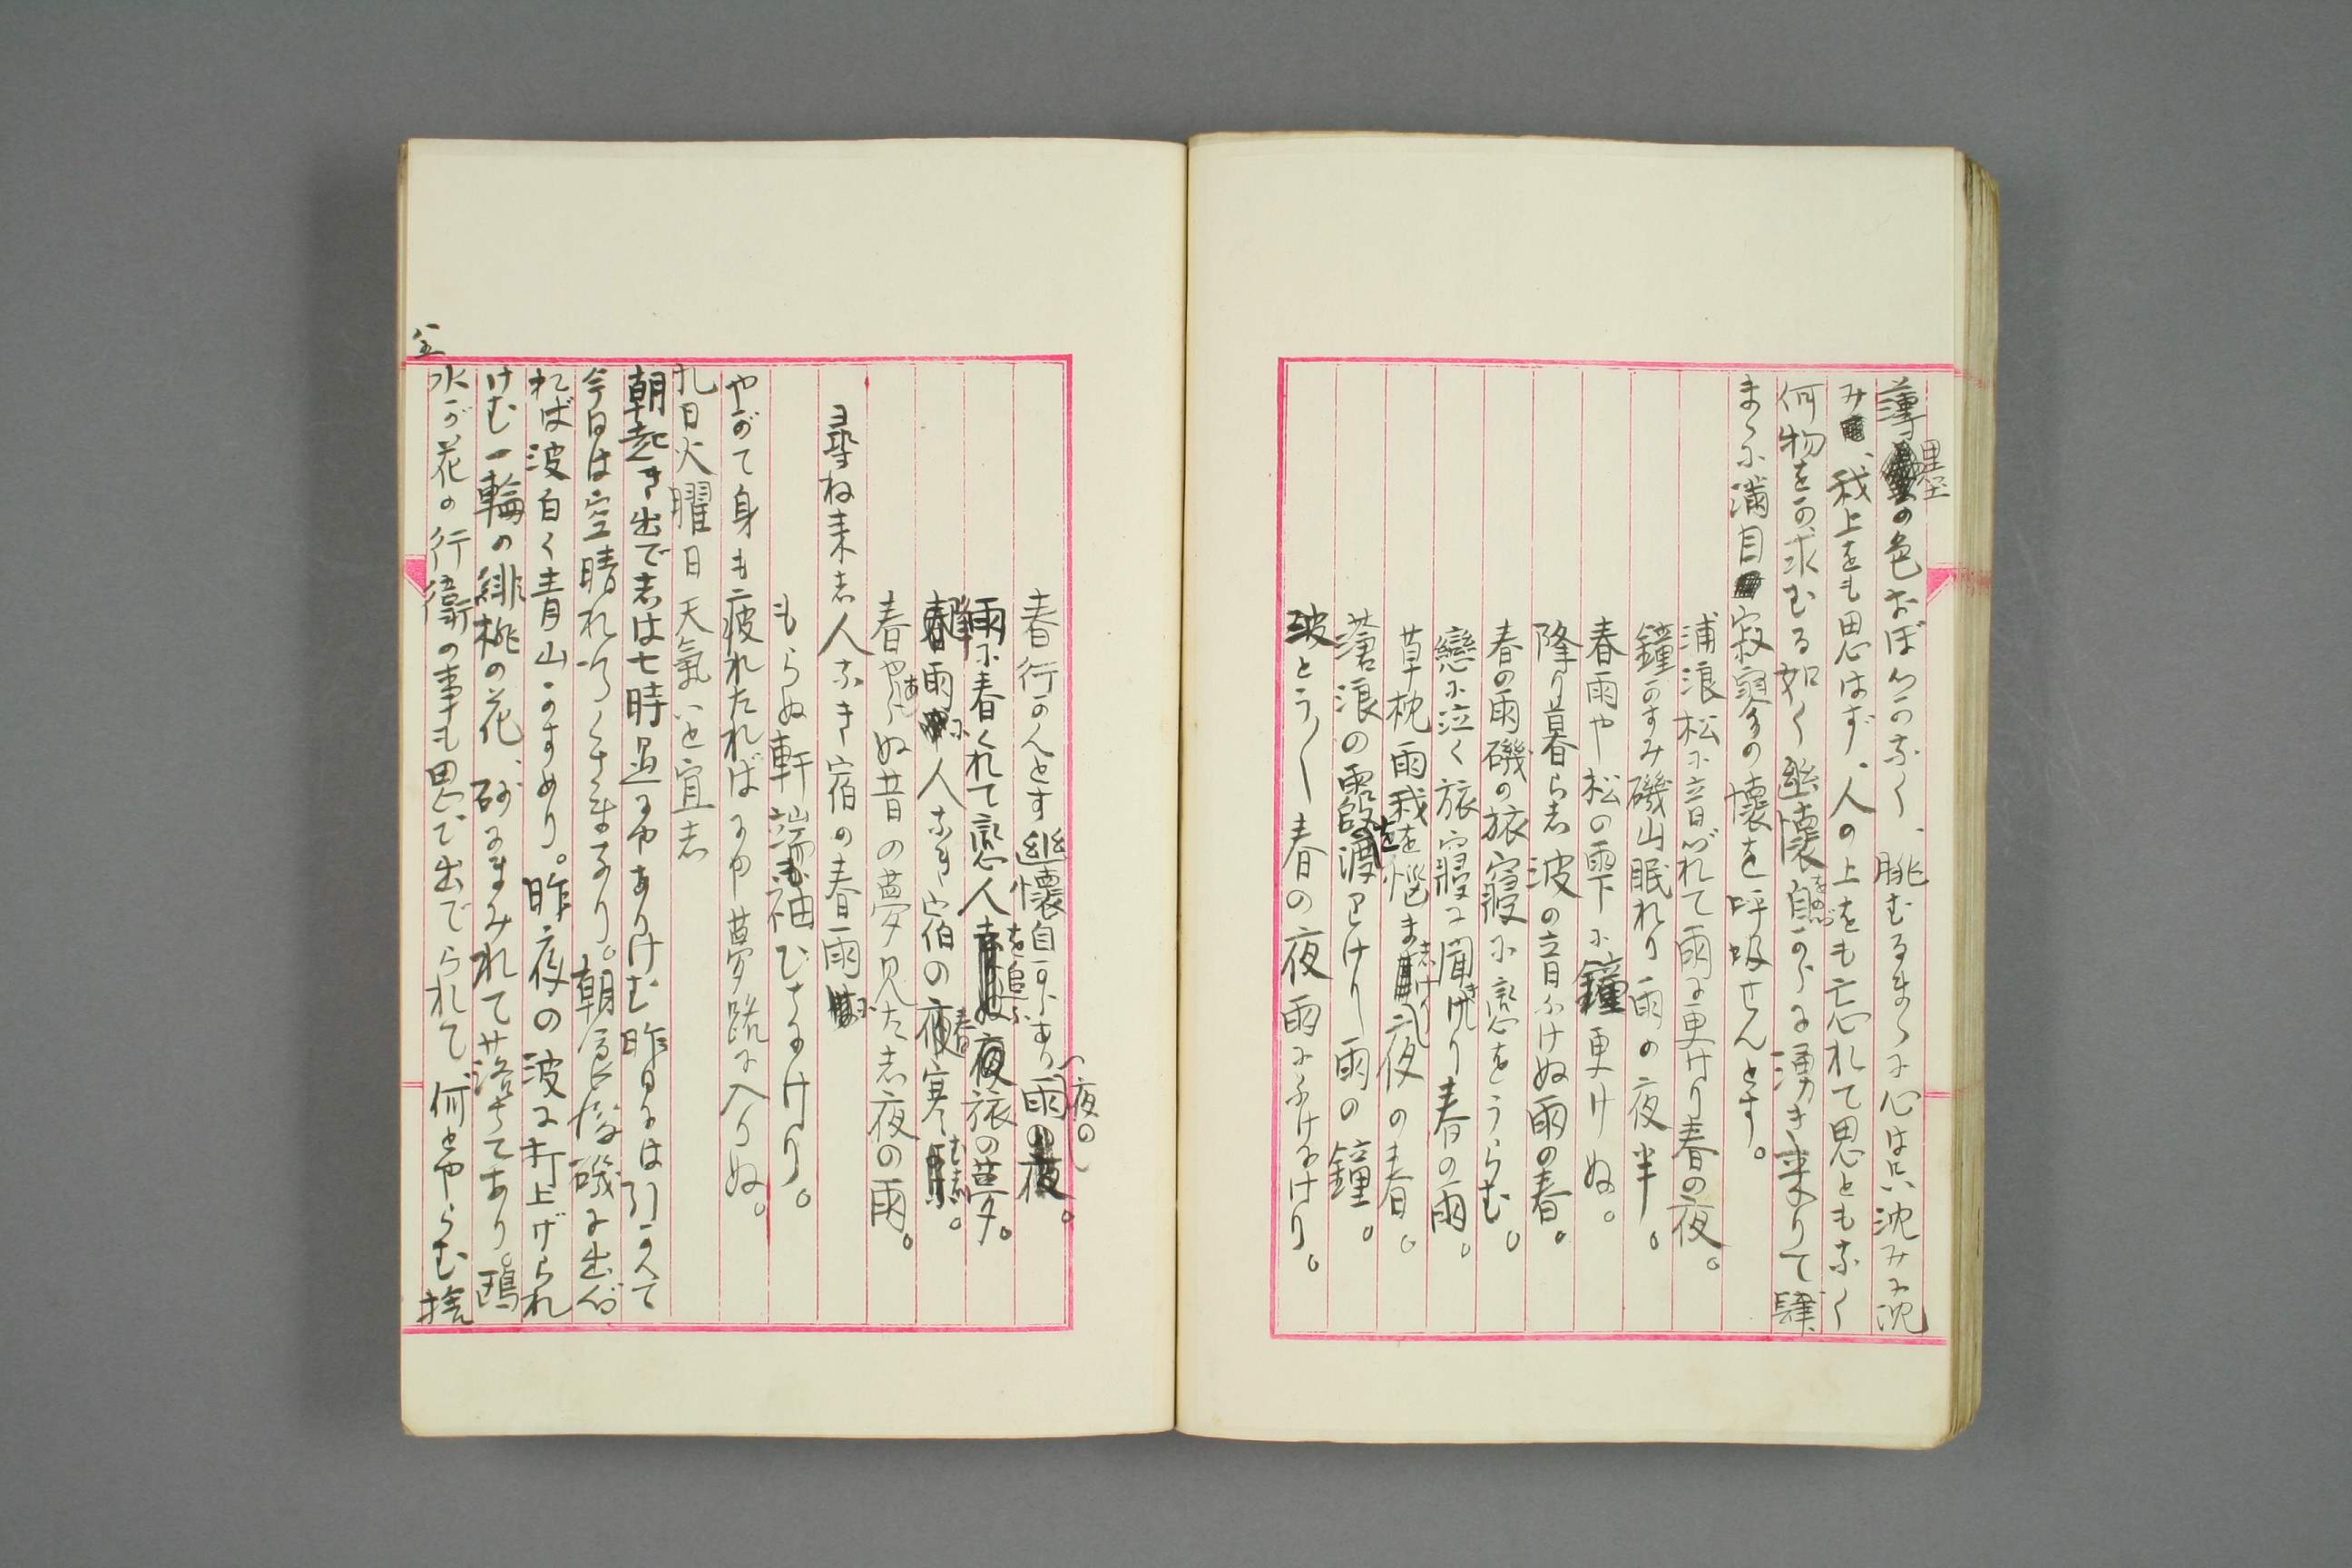 薄墨の色おぼろかなく、眺むるまゝに心は只沈みに沈
み、我上をも思はず、人の上をも忘れて思ともなく
何物をか求むる如く幽懐自からに湧き来りて肆
まゝに満目寂寥の懐を呼吸せんとす。
浦浪松に音づれて雨に更けり春の夜。
鐘かすみ磯山眠れり雨の夜半。
春雨や松の雫に鐘更けぬ。
降り暮らし波の音ふけぬ雨の春。
春の雨磯の旅寝に恋をうらむ。
戀に泣く旅寝に聞けり春の雨。
草枕雨我を悩ましけり夜の春。
蒼浪の霞を渡りけり雨の鐘。
波とう〳〵春の夜雨にふけにけり。
春行かんとす幽懐自からあり夜の雨。
雨に春くれて恋人を追ふ夜旅の夢。
春雨に人なき宿の春寒むし。
春やあらぬ昔の夢見たし夜の雨。
尋ね来し人なき宿の春雨に
もらぬ軒端も袖ひぢにけり。
やがて身も疲れたればにや夢路に入りぬ。
九日火曜日 天氣いと宜し
朝起き出でしは七時過にやありけむ昨日には引かへて
今日は空晴れ
れば波白く青山かすめり。昨夜の波に打上げられ
けむ一輪の緋桃の花、砂にまみれて落ちてあり。鴎
水が花の行衛の事も思ひ出でられて、何とやらむ捨